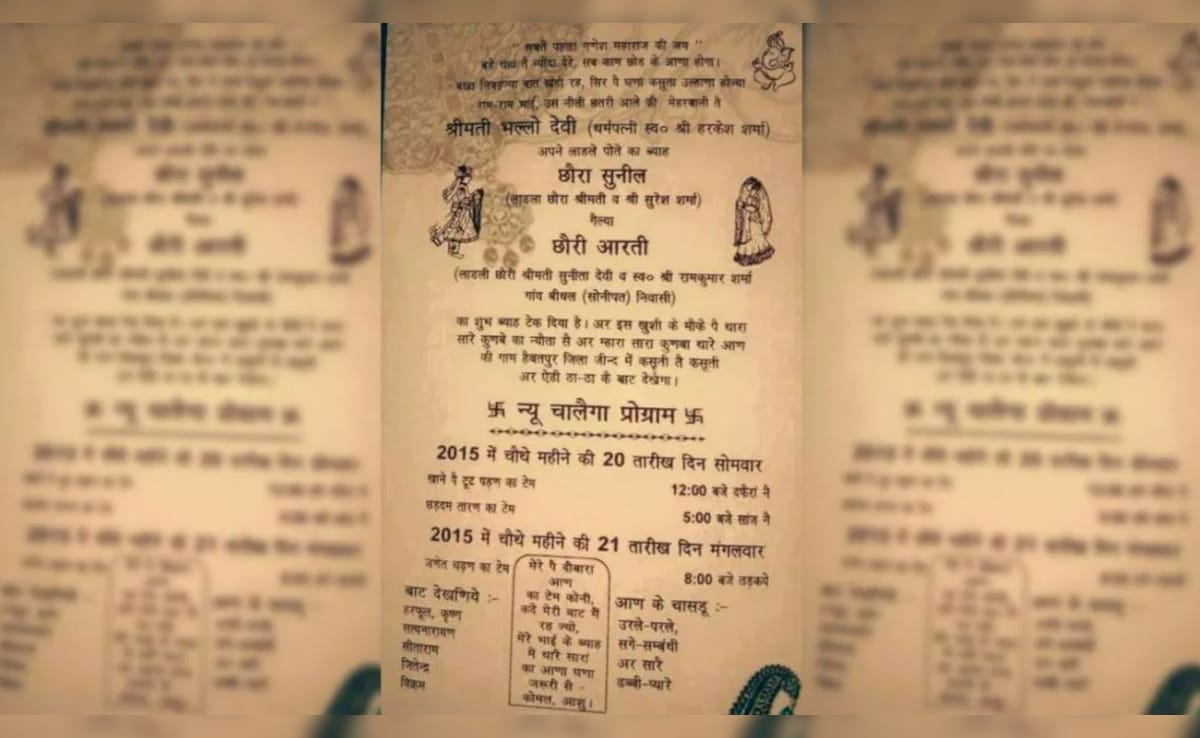 " सबतै पहला गणेश महाराज की जय "
बड़े चाव तै न्यौंदा देरे, सब काम छोड के आणा होगा।
बख्त लिकड़ज्या बात खड़ी रह, सिर पै घणा कसूता उल्हाणा होज्या
राम-राम भाई, उस नीली छतरी आले की मेहरबानी तै
श्रीमती भल्लो देवी (धर्मपत्नी स्व० श्री हरकेश शर्मा)
अपने लाडले पोते का ब्याह
छौरा सुनील
(लाडला छौरा श्रीमती व श्री सुरेश शर्मा)
गैल्या
छौरी आरती
(लाडली छौरी श्रीमती सुनीता देवी व स्व० श्री रामकुमार शर्मा
गांव बीधल (सोनीपत) निवासी)
का शुभ ब्याह टेक दिया है। अर इस खुशी के मौके पै थारा
सारे कुणबे का न्यौता सै अर म्हारा सारा कुणबा थारे आण
की गाम हैबतपुर जिला जीन्द में कसूती तै कसूती
अर ऐडी ठा-ठा कै बाट देखेगा।
卐 न्यू चालैगा प्रोग्राम 卐
2015 में चौथे महीने की 20 तारीख दिन सोमवार
खाने पै टूट पड़ण का टेम 12:00 बजे दफैरां नै
छड़दम तारण का टेम 5:00 बजे सांज नै
2015 में चौथे महीने की 21 तारीख दिन मंगलवार
जणेत चढ़ण का टेम 8:00 बजे तड़कये
बाट देखणिये :-
हरफूल, कृष्ण
सत्यनारायण
सीताराम
जितेन्द्र
विक्रम
मेरे पै दौबारा
आण
का टेम कोनी,
कदे मेरी बाट मैं
रह ज्यो,
मेरे भाई के ब्याह
में थारे सारां
का आणा घणा
जरूरी सै -
कोमल, आशु।
आण के चासडू :-
उरले-परले,
सगे-सम्बंधी
अर सारे
ढब्बी-प्यारे